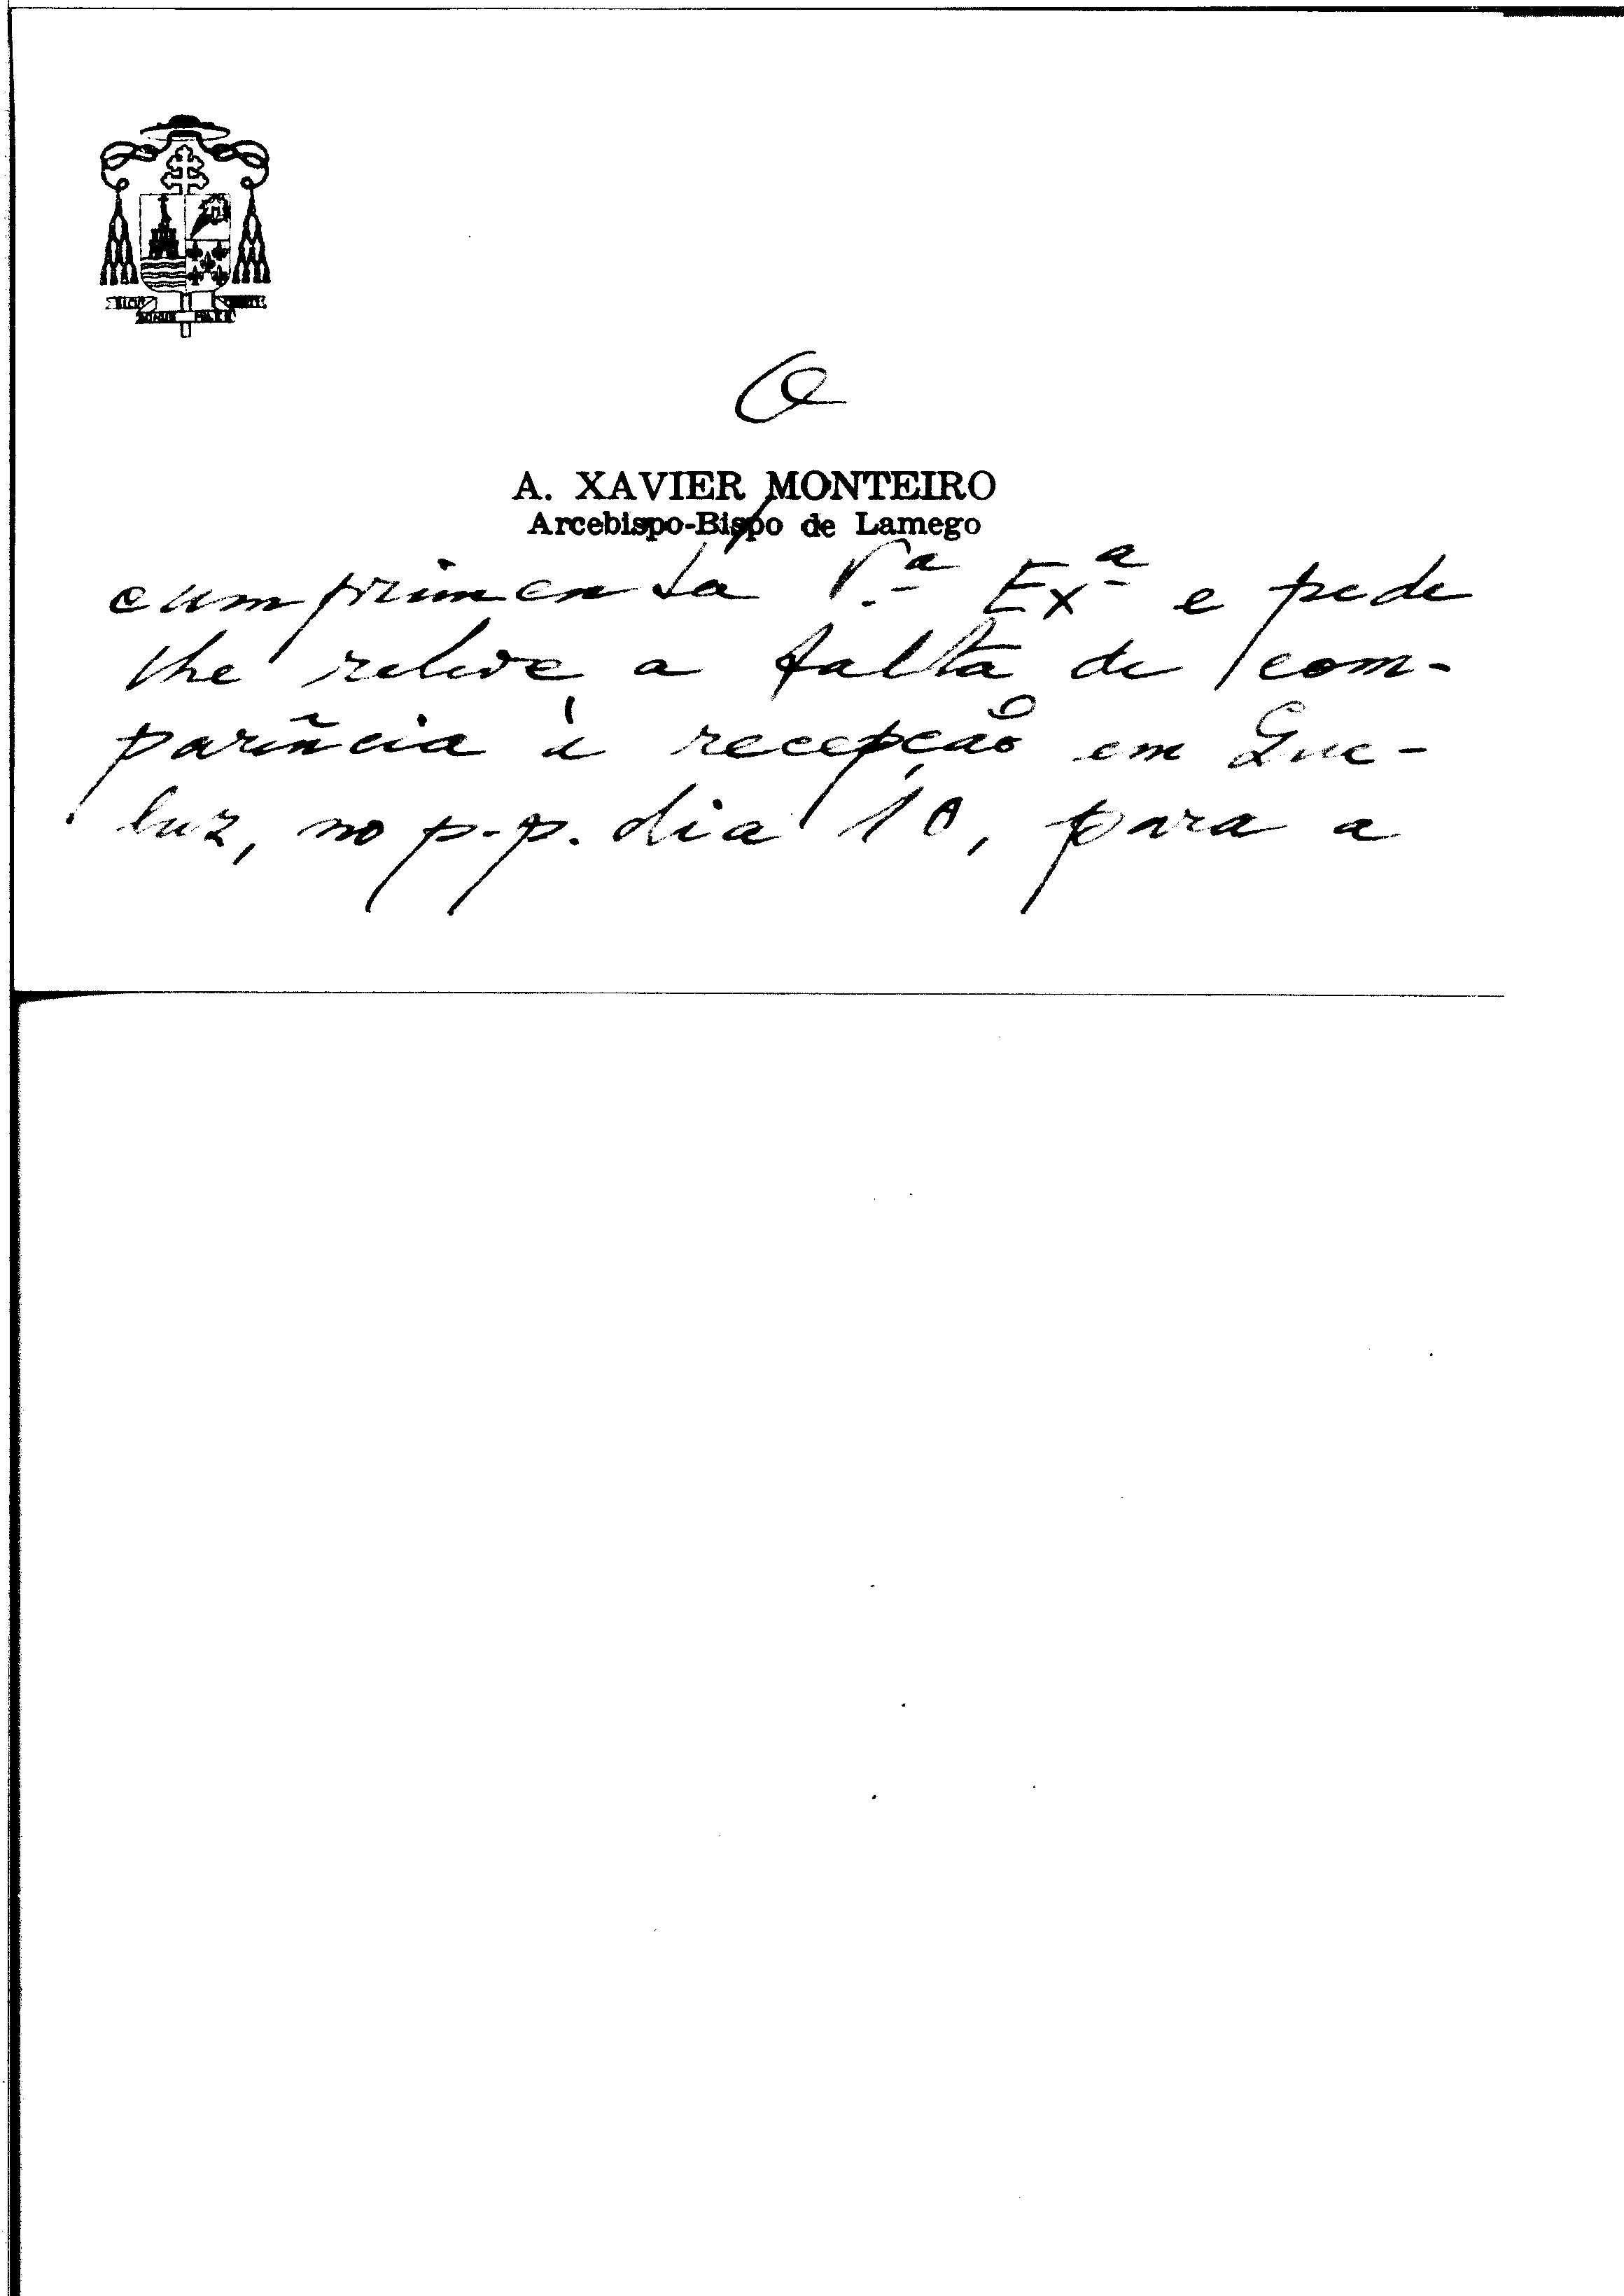 O
A. XAVIER MONTEIRO
Arcebispo-Bispo de Lamego
cumprimenta V.ª Exª e pede
lhe releve a falta de com-
parência à recepção em Que-
luz, no p.p. dia 10, para a